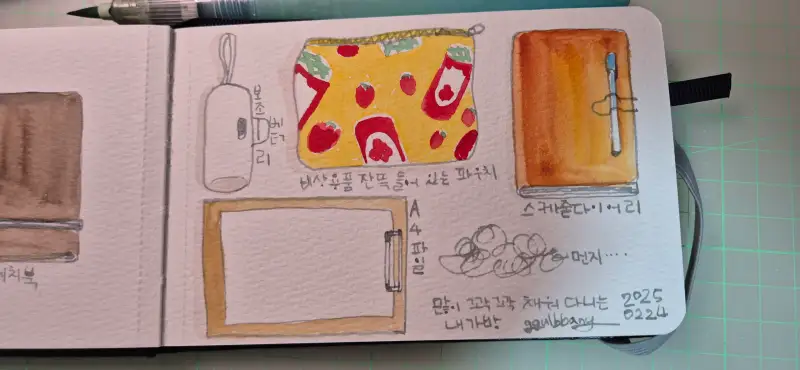 보조
배터리
비상용품 잔뜩 들어 있는 파우치
스케줄다이어리
A4 파일
먼지....
많이 꾹꾹 채워 다니는
내가방
2025
0224
치북